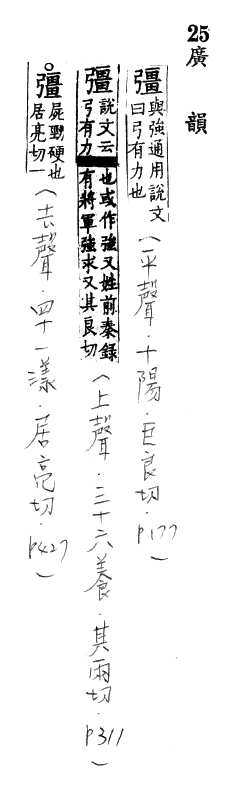 25 廣韻
彊 與強通用說文曰弓有力也（平聲．十陽．巨良切．p177）
彊 說文云弓有力也或作強又姓前秦錄有將軍強求又其良切（上聲．三十六養．其兩切．p311）
彊 屍勁硬也居亮切一（去聲．四十一漾．居亮切．p427）